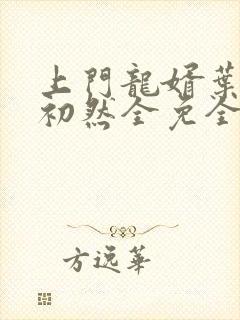 上門龍婿葉
初然全免全
方逸華